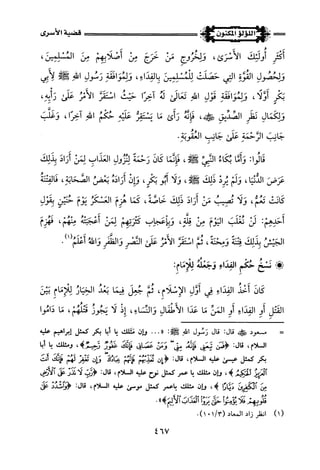 اللؤلؤ المكنون
قضية الأسرى
أَكْثَرِ أُولَئِكَ الأَسْرَى، وَلِخُرُوجِ مَنْ خَرَجَ مِنْ أَصْلَابِهِمْ مِنَ المُسْلِمِينَ،
وَلِحُصُولِ القُوَّةِ التِي حَصَلَتْ لِلْمُسْلِمِينَ بِالفِدَاءِ، وَلِمُوَافَقَةِ رَسُولِ اللهِ ﷺ لِأَبِي
بَكْرٍ أَوَّلًا، وَلِمُوَافَقَةِ قَوْلِ اللهِ تَعَالَى لَهُ آخِرًا حَيْثُ اسْتَقَرَّ الأَمْرُ عَلَى رَأْيِهِ،
وَلِكَمَالِ نَظَرِ الصِّدِّيقِ ﷺ، فَإِنَّهُ رَأَى مَا يَسْتَقِرُّ عَلَيْهِ حُكْمُ اللهِ آخِرًا، وَغَلَّبَ
جَانِبَ الرَّحْمَةِ عَلَى جَانِبِ العُقُوبَةِ.
قَالُوا: وَأَمَّا بُكَاءُ النَّبِيِّ ﷺ، فَإِنَّمَا كَانَ رَحْمَةً لِنُزُولِ العَذَابِ لِمَنْ أَرَادَ بِذَلِكَ
عَرَضَ الدُّنْيَا، وَلَمْ يُرِدْ ذَلِكَ ﷺ، وَلَا أَبُو بَكْرٍ، وَإِنْ أَرَادَهُ بَعْضُ الصَّحَابَةِ، فَالفِتْنَةُ
كَانَتْ تَعُمُّ، وَلَا تُصِيبُ مَنْ أَرَادَ ذَلِكَ خَاصَّةً، كَمَا هُزِمَ العَسْكَرُ يَوْمَ حُنَيْنٍ بِقَوْلِ
أَحَدِهِمْ: لَنْ نُغْلَبَ اليَوْمَ مِنْ قِلَّةٍ، وَبِإِعْجَابِ كَثْرَتِهِمْ لِمَنْ أَعْجَبَتْهُ مِنْهُمْ، فَهُزِمَ
الجَيْشُ بِذَلِكَ فِتْنَةً وَمِحْنَةً، ثُمَّ اسْتَقَرَّ الأَمْرُ عَلَى النَّصْرِ وَالظَّفَرِ وَاللهُ أَعْلَمُ(١).
نَسْخُ حُكْمِ الفِدَاءِ وَجَعْلُهُ لِلْإِمَامِ:
كَانَ أَخْذُ الفِدَاءِ فِي أَوَّلِ الإِسْلَامِ، ثُمَّ جُعِلَ فِيمَا بَعْدُ الخِيَارُ لِلْإِمَامِ بَيْنَ
القَتْلِ أَوِ الفِدَاءِ أَوِ المَنِّ مَا عَدَا الأَطْفَالَ وَالنِّسَاءَ، إِذْ لَا يَجُوزُ قَتْلُهُمْ، مَا دَامُوا
= مسعود قال: قال رسول الله ﷺ: «... وإن مثلك يا أبا بكر كمثل إبراهيم عليه
السلام، قال: ﴿فَمَن تَبِعَنِي فَإِنَّهُ مِنِّي وَمَنْ عَصَانِي فَإِنَّكَ غَفُورٌ رَّحِيمٌ﴾، ومثلك يا أبا
بكر كمثل عيسى عليه السلام، قال: ﴿إِن تُعَذِّبْهُمْ فَإِنَّهُمْ عِبَادُكَ وَإِن تَغْفِرْ لَهُمْ فَإِنَّكَ أَنتَ
الْعَزِيزُ الْحَكِيمُ﴾، وإن مثلك يا عمر كمثل نوح عليه السلام، قال: ﴿رَّبِّ لَا تَذَرْ عَلَى الْأَرْضِ
مِنَ الْكَافِرِينَ دَيَّارًا﴾، وإن مثلك ياعمر كمثل موسى عليه السلام، قال: ﴿وَاشْدُدْ عَلَى
قُلُوبِهِمْ فَلَا يُؤْمِنُوا حَتَّى يَرَوُا الْعَذَابَ الْأَلِيمَ﴾».
(١) انظر زاد المعاد (٣/ ١٠١).
٤٦٧